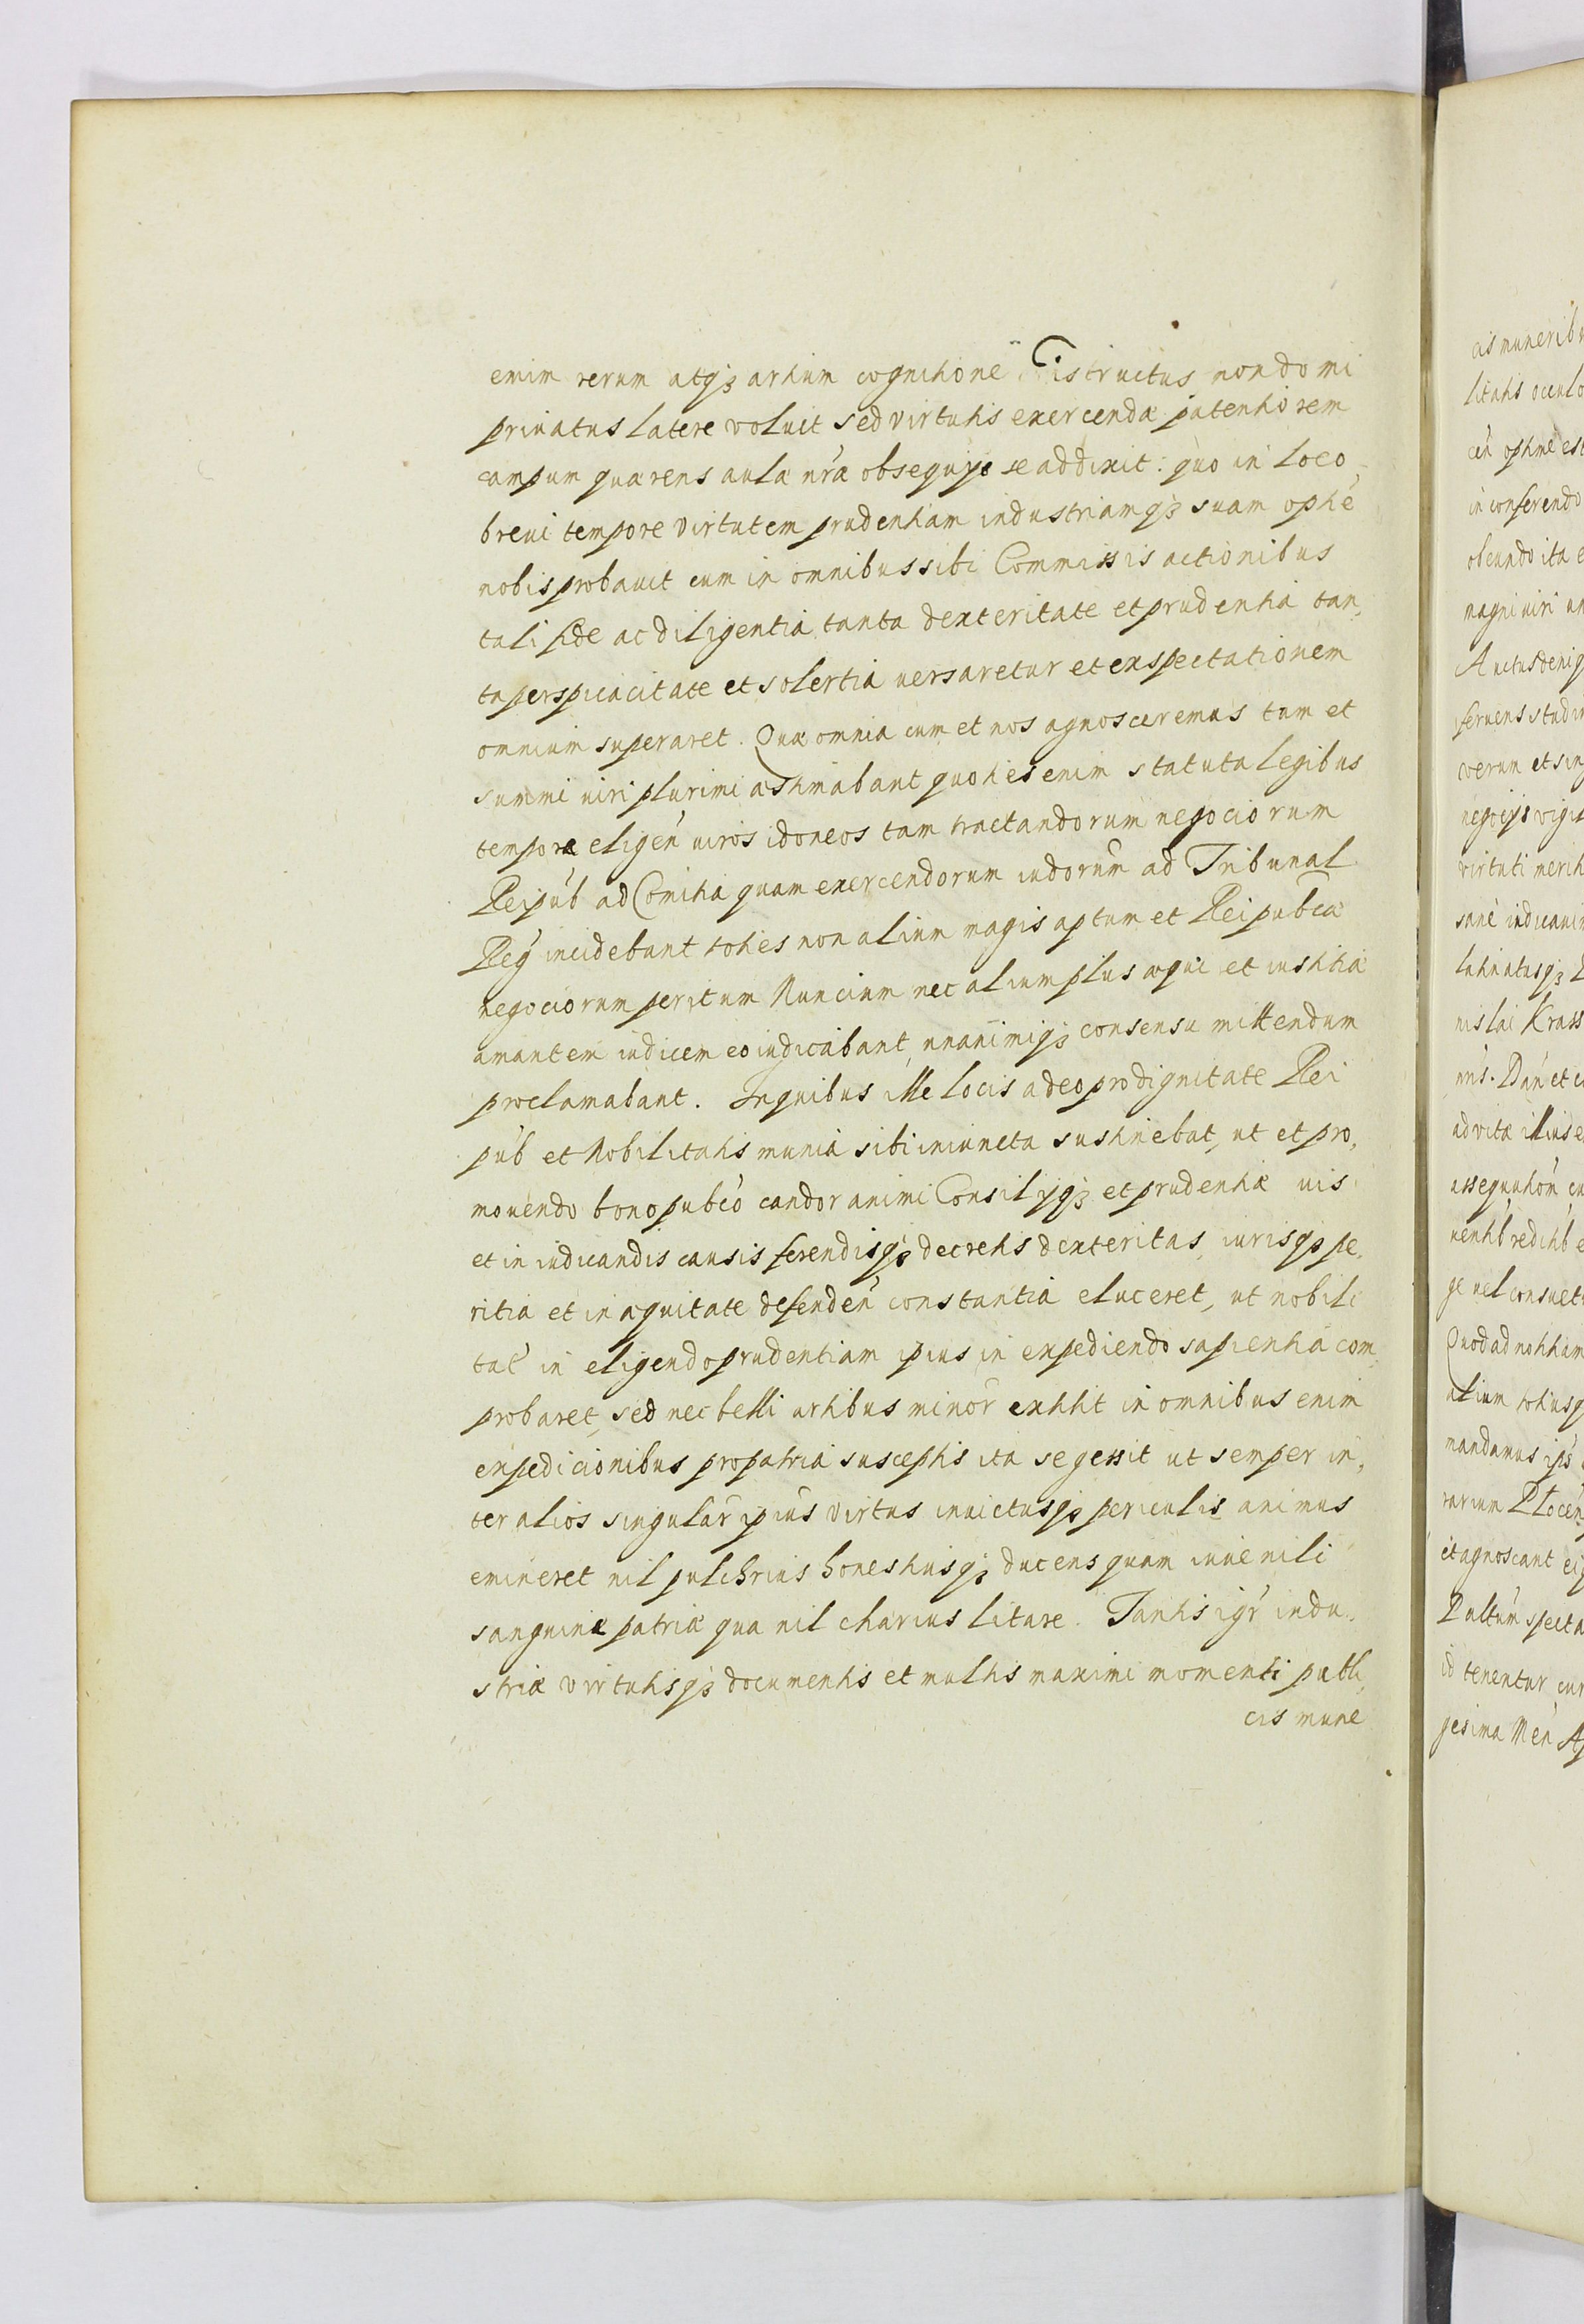 enim rerum atq3 artium cognitione istructus non domi
priuatus latere voluit sed virtutis exercendæ patentiorem
campum quærens aulæ nrǽ obsequijs se addixit: quo in loco
breui tempore virtutem prudentiam industriamq3 suam optie
nobis probauit cum in omnibus sibi Commissis actionibus
tali fide ac diligentia tanta dexteritate et prudentia tan,
ta perspicacitate et solertia uersaretur et exspectationem
omnium superaret. Quæ omnia cum et nos agnosceremus tum et
summi uiri plurimi æstimabant quoties enim statuta legibus
tempora eligen uiros idoneos tam tractandorum negociorum
Reipub ad Comitia quam exercendorum iudorum ad Tribunal
Reg incidebant toties non alium magis aptum et Reipubcæ
negociorum peritum Nuncium nec alium plus æqui et iustitiæ
amantem iudicem eo iudicabant unanimiq3 consensu mittendum
proclamabant. In quibus ille locis adeo pro dignitate Rei
pub et Nobilitatis munia sibi iniuncta sustinebat, ut et pro,
mouendo bono pubco candor animi Consilijq3 et prudentiæ uis
et in iudicandis causis ferendisq3 decretis dexteritas, iurisq3 pe,
ritia et in æquitate defenden constantia eluceret, ut nobili
tas in eligendo prudentiam ipius in expediendo sapientiã com,
probaret, sed nec belli artibus minor extitit in omnibus enim
expedicionibus pro patria susceptis ita se gessit ut semper in,
ter alios singular ipius virtus inuictusq3 periculis animus
emineret nil pulchrius honestiusq3 ducens quam iuuenili
sanguine patriæ qua nil charius litare. Tantis igr indu,
striæ virtutisq3 documentis et multis maximi momenti publi,
cis mune
cis muneribu
litatis oculo
cen optime est
in conferendo
obeundo ita e
magni uiri
Auctus deniq
feruens studi
verum et sin
negocijs vigi
virtuti merit
sane iudicaui
latinatusq3
nislai Krass
Dan et c
ad vitæ illius e
assequution
uentib reditib e
ge uel consuet
Quod ad notitiam
alium totius
mandamus ips
rarium Plocen
et agnoscant ei
Pultum specta
id tenentur cur
gesima Men Ap